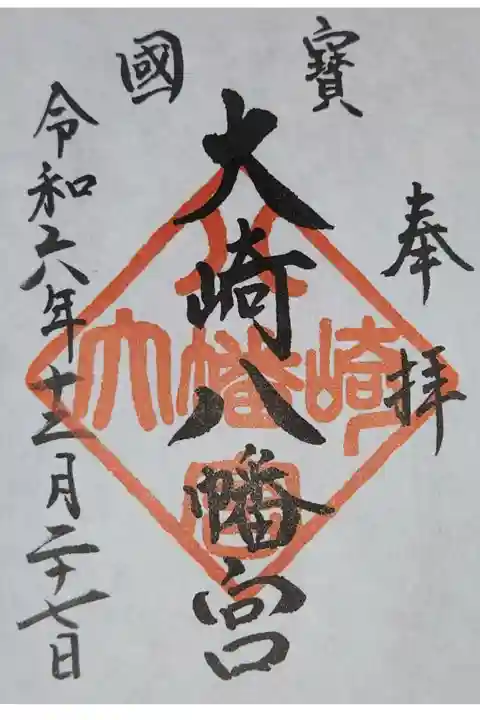 國寳
奉拝
大崎八幡宮
令和六年十二月二十七日
大崎八幡宮